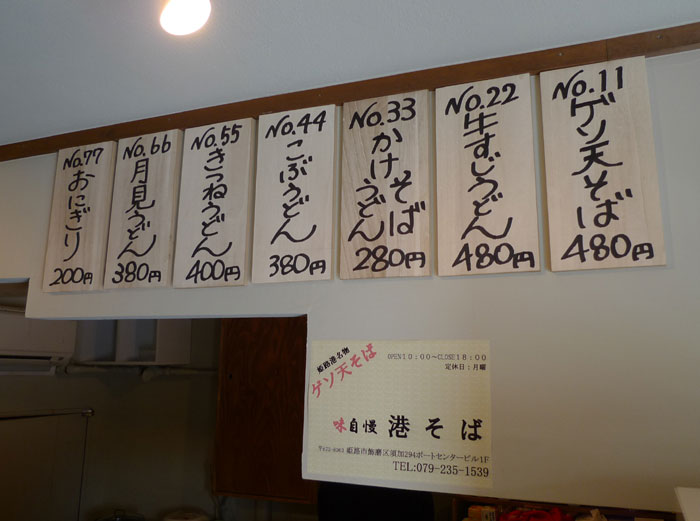 No.11
ゲソ天そば
480円
No.22
牛すじうどん
480円
No.33
かけそば
うどん
280円
No.44
こぶうどん
380円
No.55
きつねうどん
400円
No.66
月見うどん
380円
No.77
おにぎり
200円
姫路港名物
ゲソ天そば
OPEN10:00〜CLOSE18:00
定休日:月曜
味自慢 港そば
〒672-8063 姫路市飾磨区須加294ポートセンタービル1F
TEL:079-235-1539